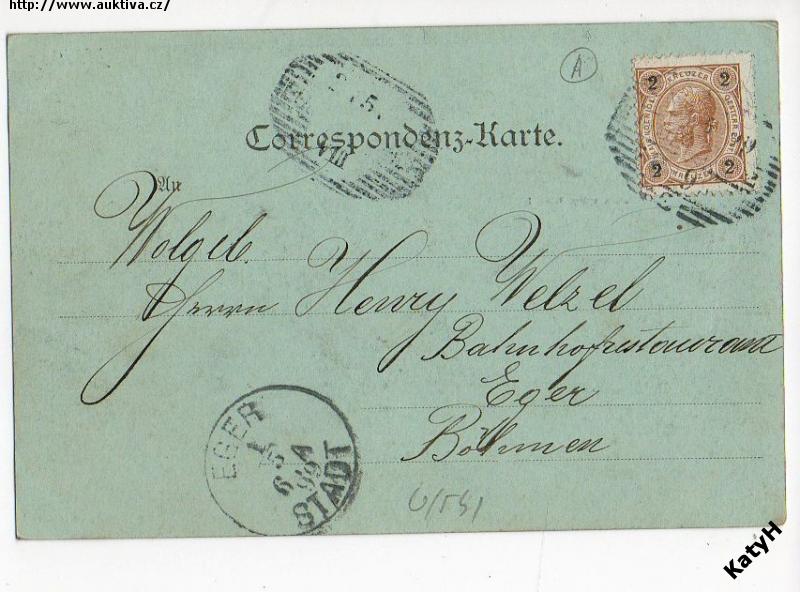 http://www.auktiva.cz/
A
2
2
KREUZER
2
2
Correspondenz-Karte.
An
Wolgeb.
Herrn Henry Welzel
Bahnhofrestaurant
Eger
Böhmen
EGER
STADT
KatyH